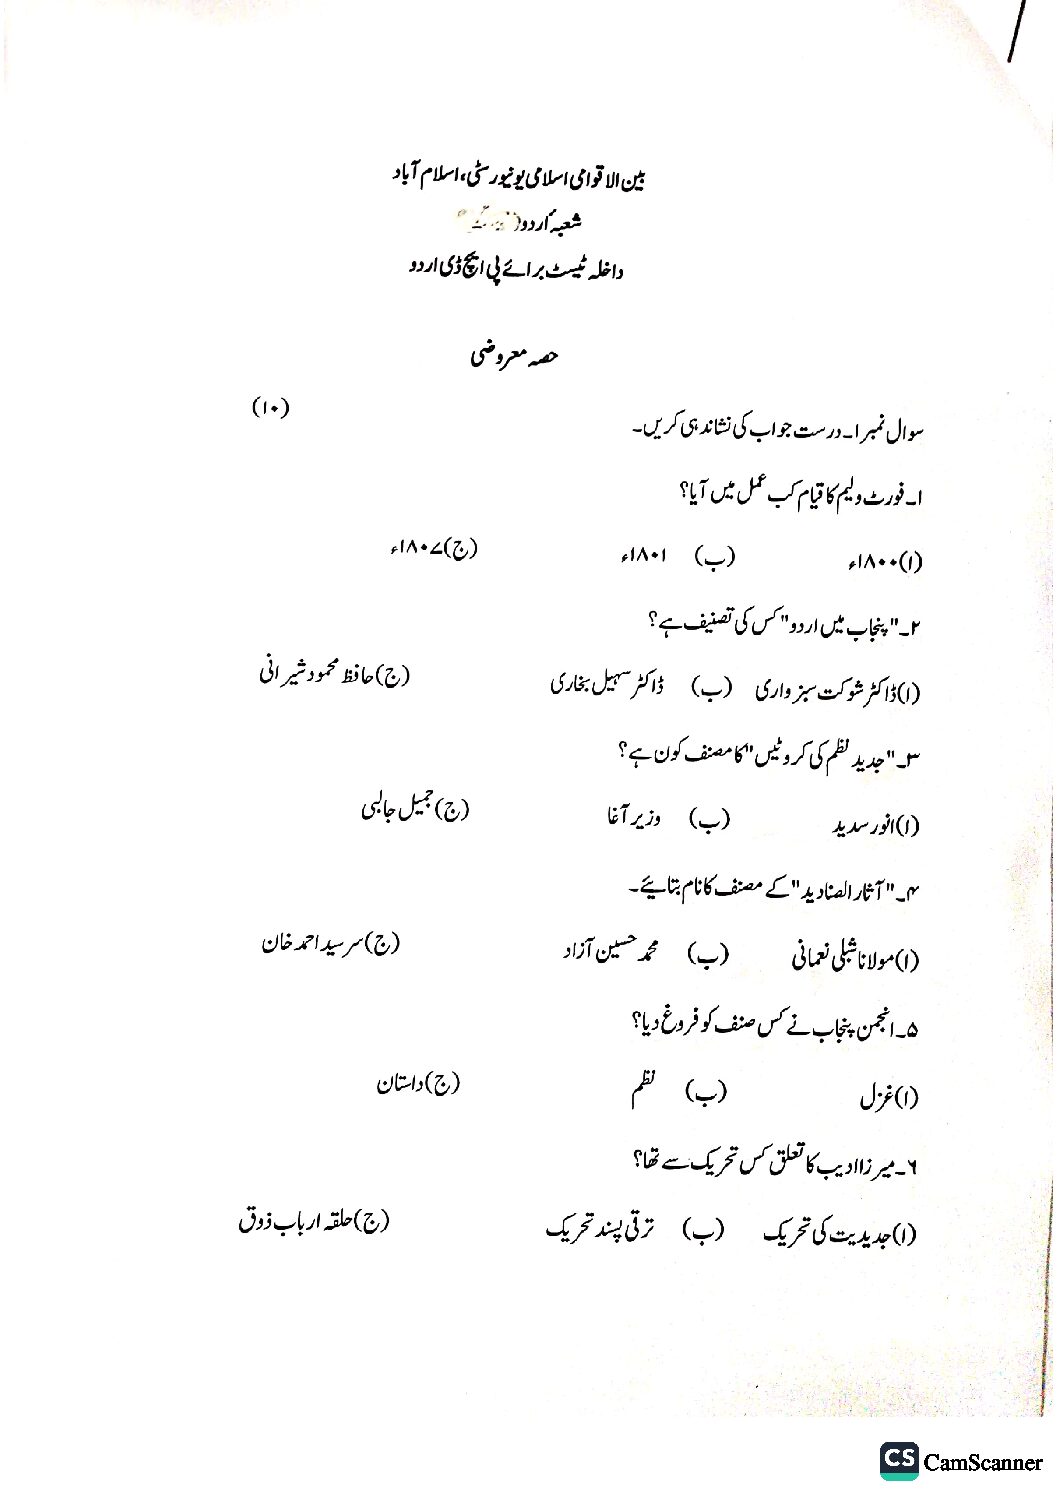 بین الاقوامی اسلامی یونیورسٹی، اسلام آباد
شعبۂ اردو
داخلہ ٹیسٹ برائے پی ایچ ڈی اردو
حصہ معروضی
سوال نمبر ۱۔ درست جواب کی نشاندہی کریں۔ (۱۰)
۱۔ فورٹ ولیم کا قیام کب عمل میں آیا؟
(ا) ۱۸۰۰ء (ب) ۱۸۰۱ء (ج) ۱۸۰۷ء
۲۔ "پنجاب میں اردو" کس کی تصنیف ہے؟
(ا) ڈاکٹر شوکت سبزواری (ب) ڈاکٹر سہیل بخاری (ج) حافظ محمود شیرانی
۳۔ "جدید نظم کی کروٹیں" کا مصنف کون ہے؟
(ا) انور سدید (ب) وزیر آغا (ج) جمیل جالبی
۴۔ "آثار الصنادید" کے مصنف کا نام بتائیے۔
(ا) مولانا شبلی نعمانی (ب) محمد حسین آزاد (ج) سر سید احمد خان
۵۔ انجمن پنجاب نے کس صنف کو فروغ دیا؟
(ا) غزل (ب) نظم (ج) داستان
۶۔ میرزا ادیب کا تعلق کس تحریک سے تھا؟
(ا) جدیدیت کی تحریک (ب) ترقی پسند تحریک (ج) حلقہ ارباب ذوق
CS CamScanner